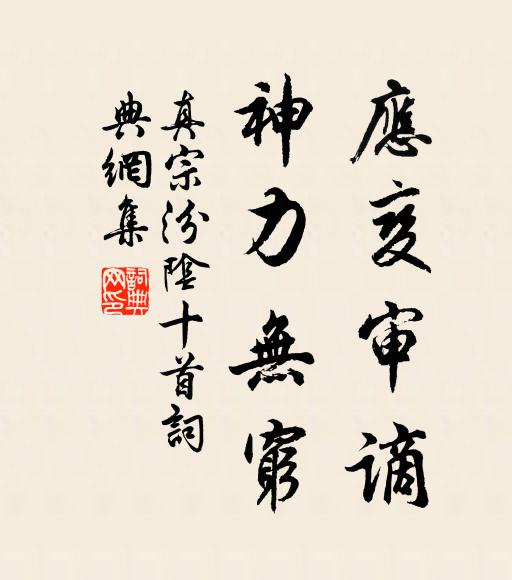 應变审谪
神力無窮
真宗汾陰十首詞
典網集
詞典網印